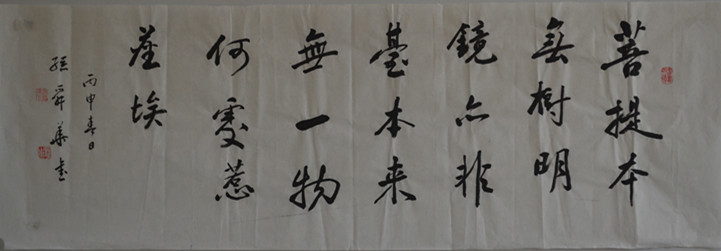 菩提本
無樹明
鏡亦非
臺本来
無一物
何處惹
塵埃
丙申春日
孫舜華書